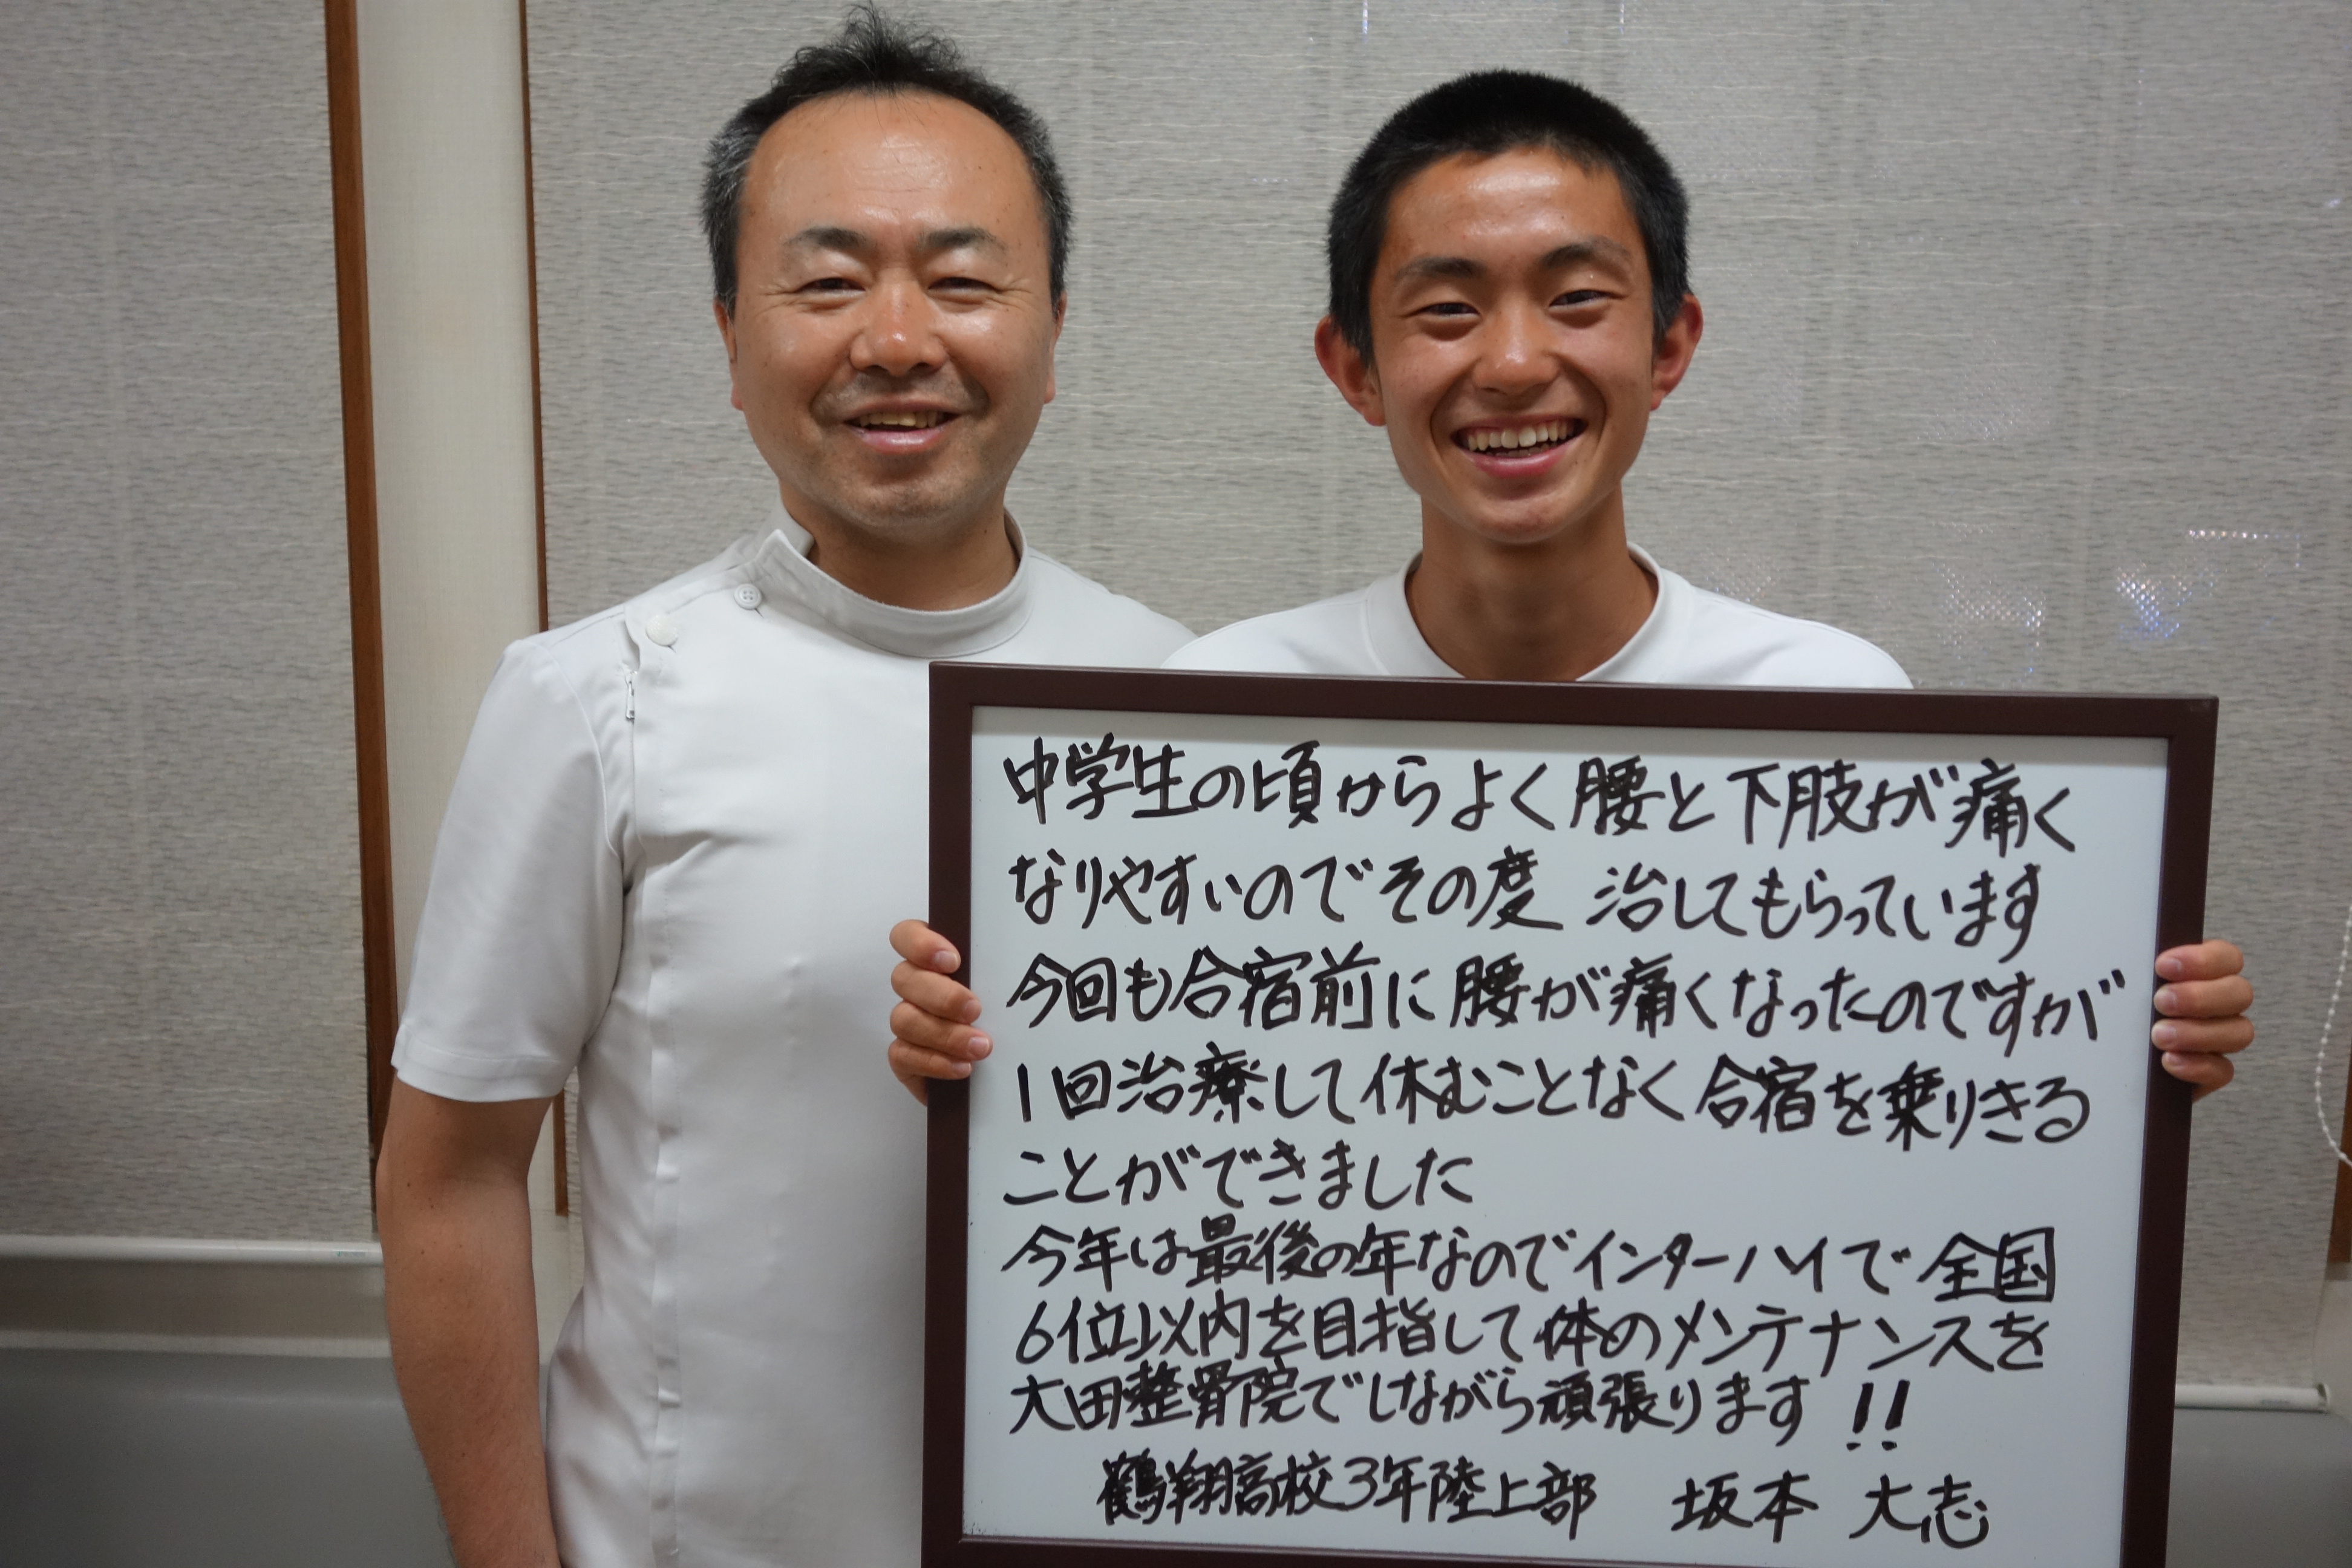 中学生の頃からよく腰と下肢が痛く
なりやすいのでその度 治してもらっています
今回も合宿前に腰が痛くなったのですが
1回治療して休むことなく合宿を乗りきる
ことができました
今年は最後の年なのでインターハイで全国
6位以内を目指して体のメンテナンスを
大田整骨院でしながら頑張ります!!
鶴翔高校3年陸上部 坂本 大志